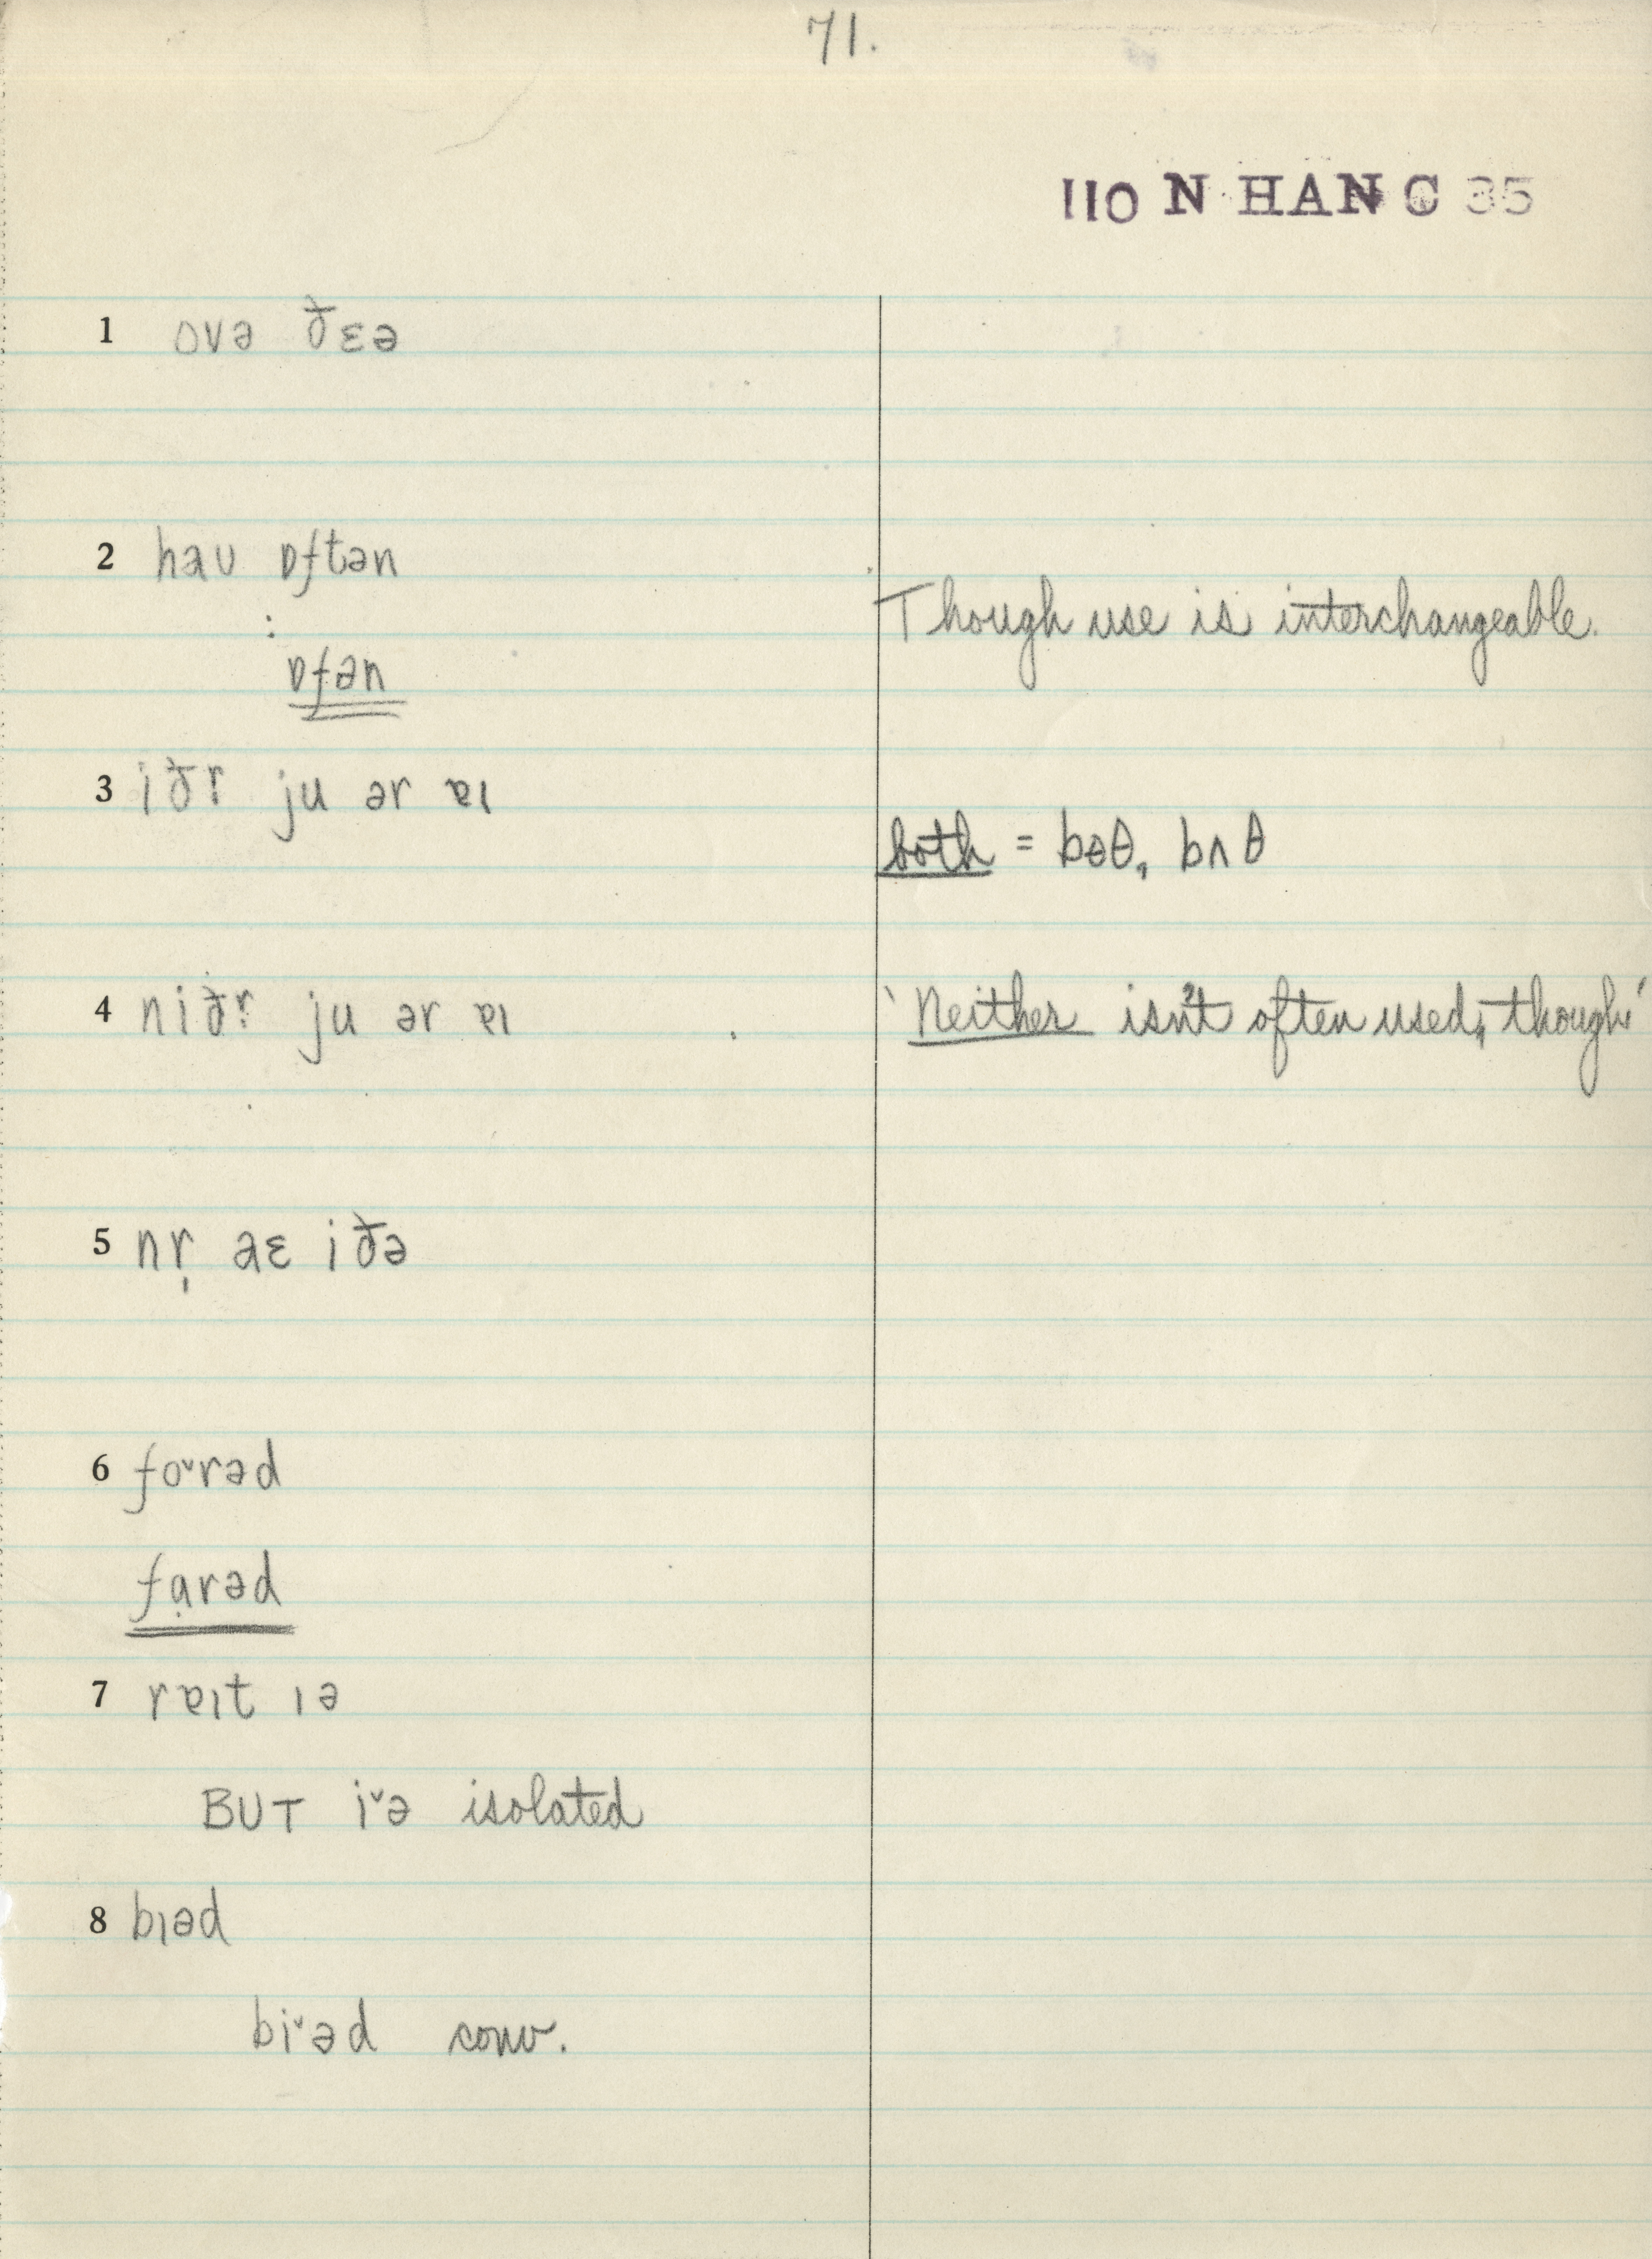 71.
110 N HAN C 35
1 ovə ðɛə
2 haʊ ɒftən
Though use is interchangeable.
:
ɒfən
3 iðr̩ ju ər ɐɪ
both = bɵθ, bʌθ
4 niðr̩ ju ər ɐɪ
'Neither isn't often used, though'
5 nr̩ aɛ iðə
6 fo˅rəd
fɑ̣rəd
7 rɐɪt ɪə
BUT i˅ə isolated
8 bɪəd
bi˅əd conv.